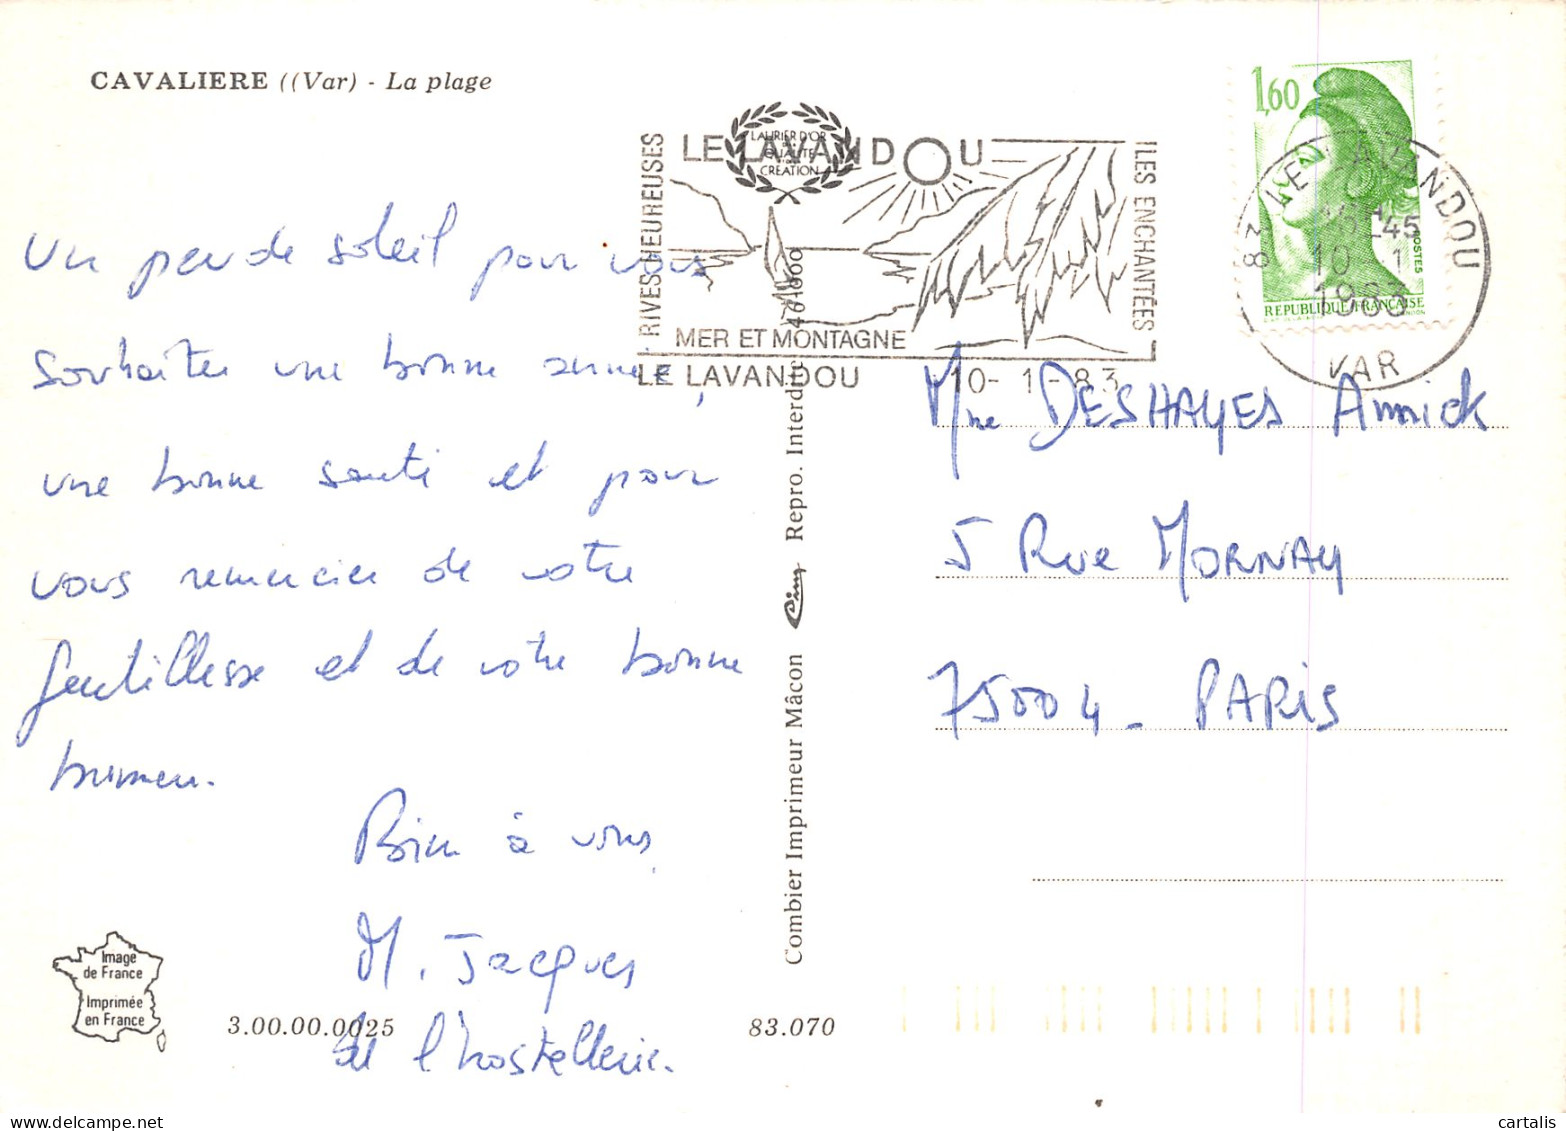 CAVALIERE ((Var) - La plage
Un peu de soleil pour vous
souhaiter une bonne année,
une bonne santé et pour
vous remercier de votre
gentillesse et de votre bonne
humeur.
Bien à vous
M. Jacques
de l'hostellerie.
Image
de France
Imprimée
en France
3.00.00.0025
83.070
Combier Imprimeur Mâcon
Cim
Repro. Interdite
LAURIER D'OR
QUALITE
CREATION
RIVES HEUREUSES
LE LAVANDOU
ILES ENCHANTÉES
MER ET MONTAGNE
LE LAVANDOU 10-1-83
1,60
POSTES
REPUBLIQUE FRANÇAISE
83 LE LAVANDOU
10 - 1
1983
VAR
Mme DESHAYES Annick
5 Rue MORNAY
75004 - PARIS
cartalis